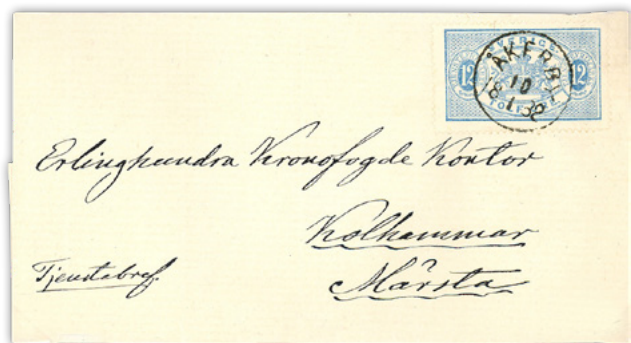 SVERIGE
12 12
TOLF ÖRE
ÅKERBY
10
18 1 86
Erlinghundra Kronofogde Kontor
Kolhammar
Märsta
Tjenstebref